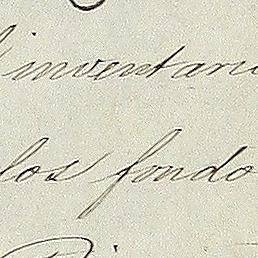 l inventari
los fondo